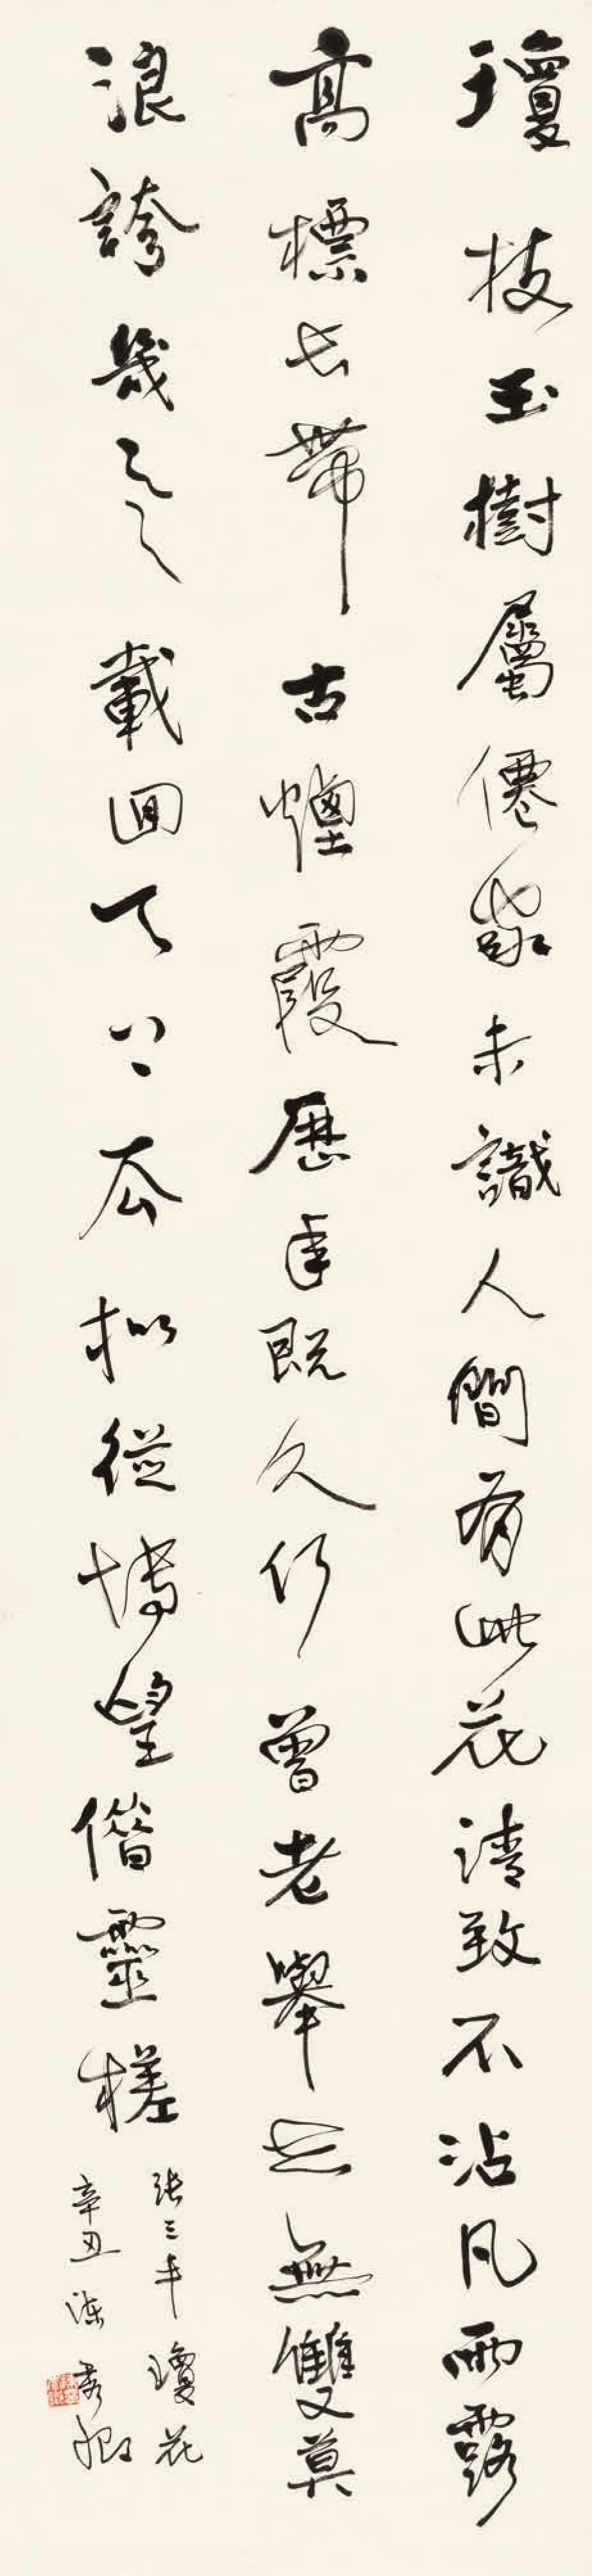 瓊枝玉樹屬僊家未識人間有此花清致不沾凡雨露
高標長帶古煙霞歷年既久何曾老舉世無雙莫
浪誇幾欲載回天上去擬從博望借靈槎
張三丰瓊花
辛丑陳秀卿